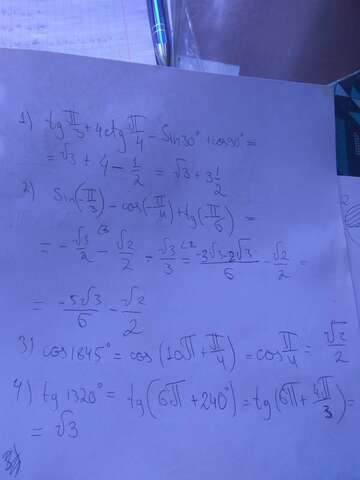 1) tg π/3 + 4ctg π/4 - Sin30° + cos90° =
= √3 + 4 - 1/2 = √3 + 3 1/2
2) Sin(-π/3) - cos(-π/4) + tg(-π/6) =
= -√3/2 - √2/2 - √3/3 = (-3√3-2√3)/6 - √2/2 =
= -5√3/6 - √2/2
3) cos1845° = cos (10π + π/4) = cos π/4 = √2/2
4) tg 1320° = tg(6π + 240°) = tg(6π + 4π/3) =
= √3